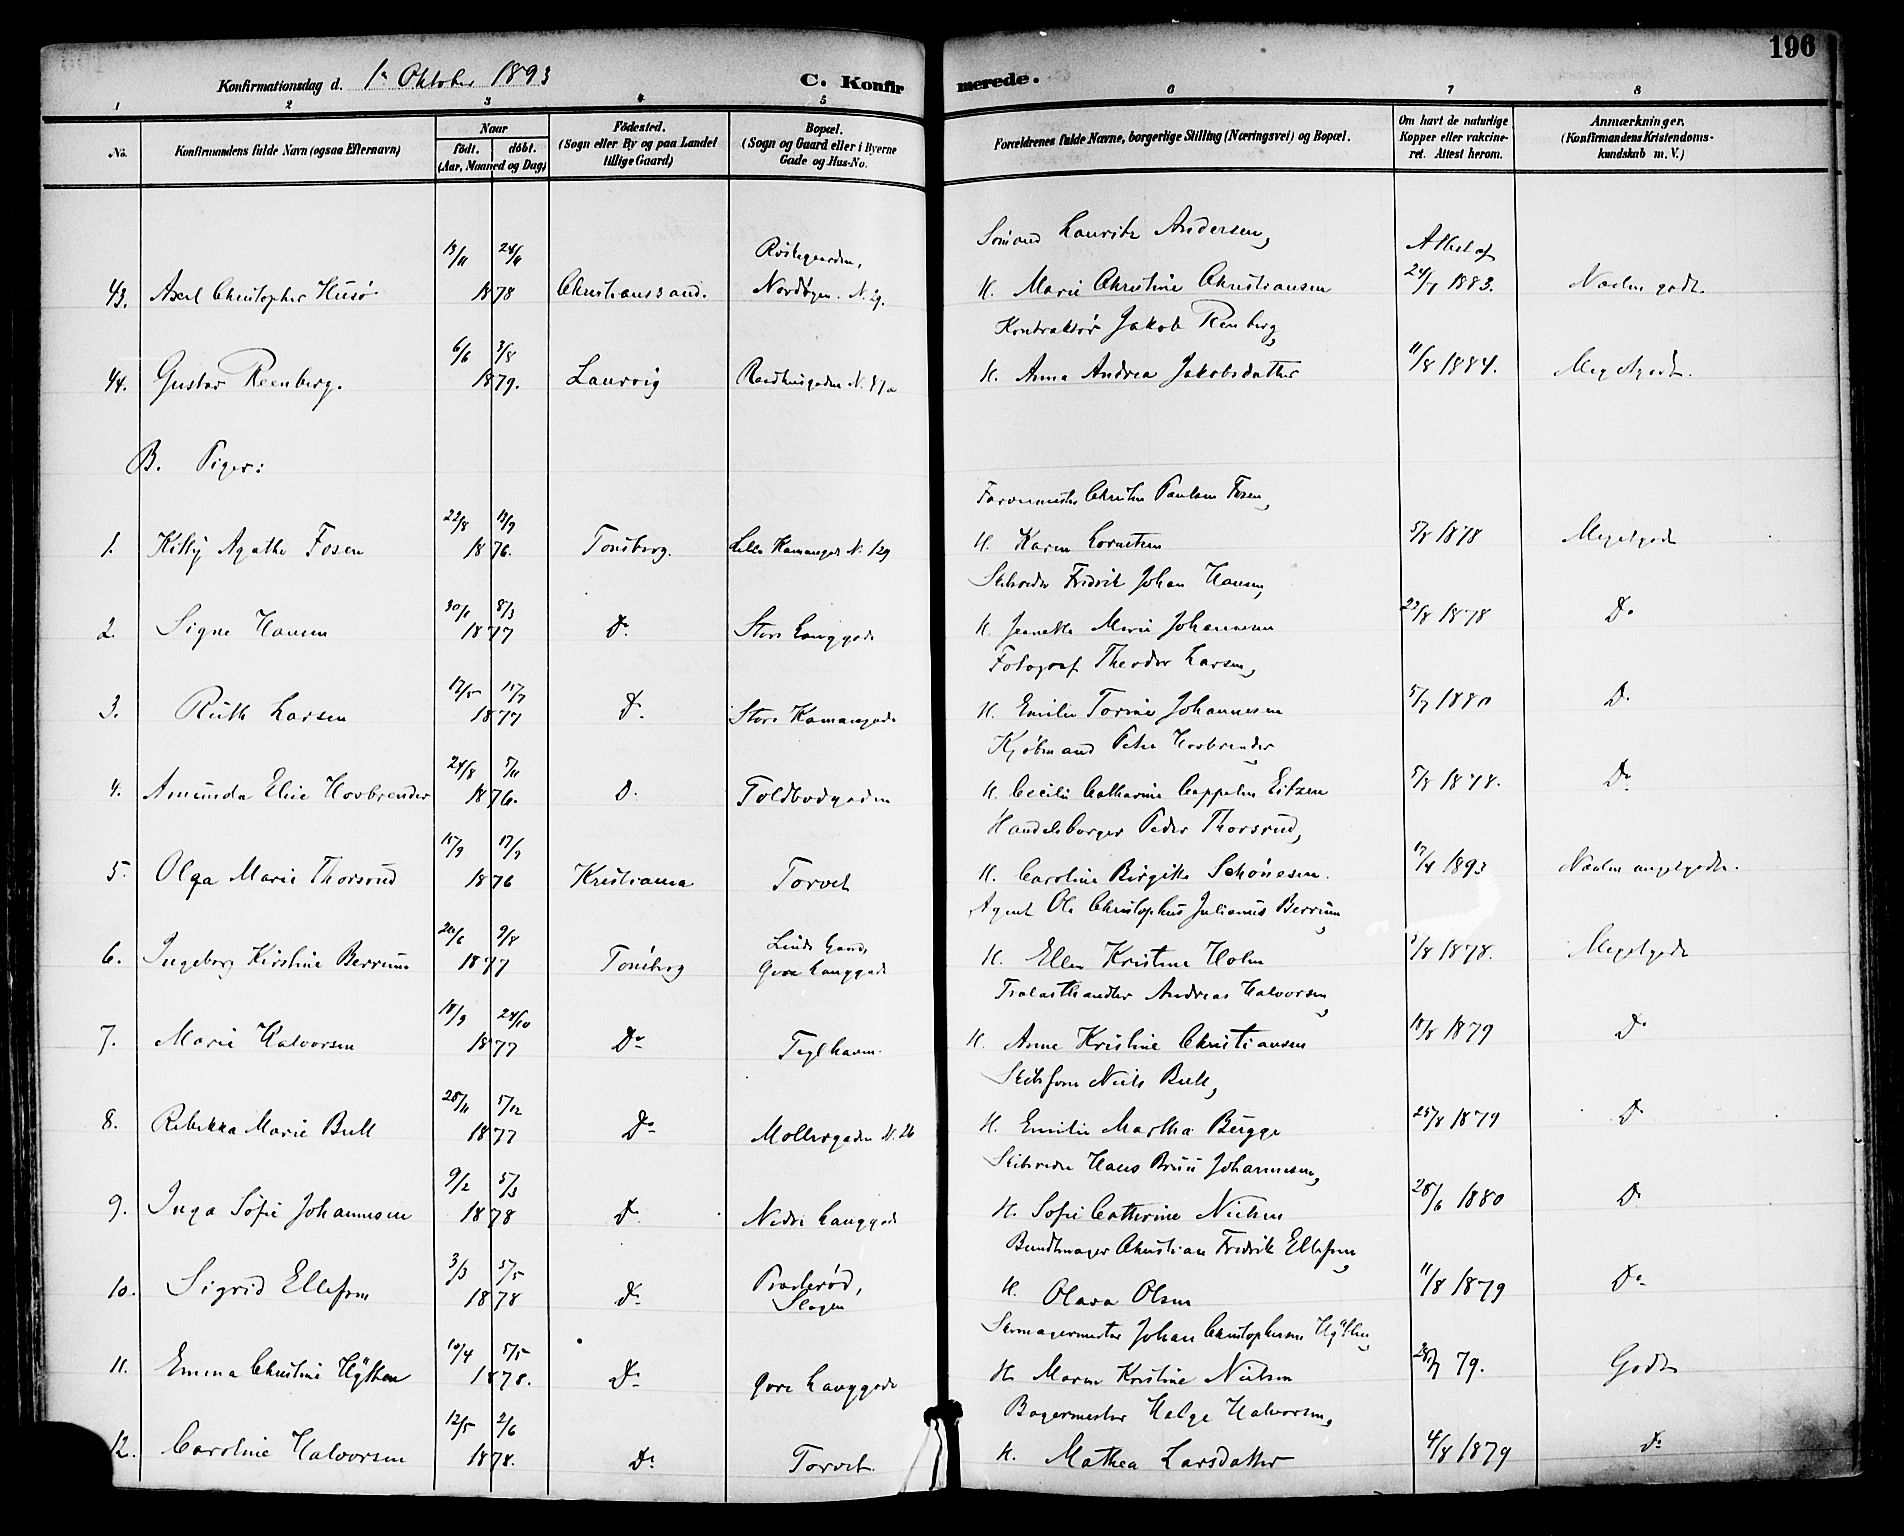 196
Konfirmationsdag d. 1ste Oktober 1893
C. Konfirmerede.
1 2 3 4 5 6 7 8
No. Konfirmandens fulde Navn (ogsaa Efternavn) Naar født. døbt. (Aar, Maaned og Dag) Fødested. (Sogn eller By og paa Landet tillige Gaard) Bopæl. (Sogn og Gaard eller i Byerne Gade og Hus-No. Forældrenes fulde Navne, borgerlige Stilling (Næringsvei) og Bopæl. Om havt de naturlige Kopper eller vakcineret. Attest herom. Anmærkninger. (Konfirmandens Kristendomskundskab m. V.)
Lauritz Andersen,
13/11 24/11 Attest af
43. Axel Christopher Husø 1878 Christianssand. H. Marie Christine Christiansen 24/7 1883. Næsten godt.
Kontraktør Jakob Reenberg,
6/6 3/8
44. Gustav Reenberg. 1879. Laurvig H. Anna Andrea Jakobsdatter 11/8 1884. Meget godt.
B. Piger:
Farvermester Fosen,
22/8
1. Kitty Agathe Fosen 1876. Tønsberg. N. 129 H. Karen 5/8 1878 Meget godt
Skibsreder Fredrik Johan Hansen,
30/1 8/3
2. Signe Hansen 1877 Do Store Langgade H. Jeanette Marie Johannesen 22/8 1878 Do
Fotograf Theodor Larsen,
12/5 15/7
3. Ruth Larsen 1877 Do Store H. Emilie Torine Johannesen 5/7 1880 Do
Kjøbmand Peter Hovbrender
24/8 5/11
4. Amunda Elise Hovbrender 1876. Do Toldbodgaden H. Cecilie Catharine Cappelen Eitzen 5/8 1878. Do
Handelsborger Peder Thorsrud,
15/9
5. Olga Marie Thorsrud 1876 Kristiania Torvet H. Caroline Birgitte 17/4 1893 Næsten meget godt.
Agent Ole Christophus Julianus Berrum,
20/6 9/8
6. Ingeborg Kirstine Berrum 1877 Tønsberg Øvre Langgade H. Ellen Kristine Holm 1878. Meget godt
Trælasthandler Andreas Halvorsen,
18/9 24/10
7. Marie Halvorsen 1877 Do Teglhavn. H. Anne Kristine Christiansen 18/8 1879 Do
Skibsfører Niels Bull,
28/11 5/12
8. Rebekka Marie Bull 1877 Do Møllergaden N. 26 H. Emilie Martha Bugge 25/8 1879 Do
Skibsreder Hans Bruu Johannesen,
9/2 5/3
9. Inga Sofie Johannesen 1878 Do Nedre Langgade H. Sofie Catherine Nielsen 28/6 1880 Do
Bundtmager Christian Fredrik Ellefsen,
3/3 5/5
10. Sigrid Ellefsen 1878 Do Slagen H. Olava Olsen 11/8 1879 Do
Skomagermester Johan Christophersen Hytten,
10/4 5/5
11. Emma Christine Hytten 1878. Do Øvre Langgade H. Maren Kristine Nielsen 79. Godt
Bagermester Helge Halvorsen,
12/5 2/6
12. Caroline Halvorsen 1878. Do Torvet H. Mathea Larsdatter 4/8 1879 Do